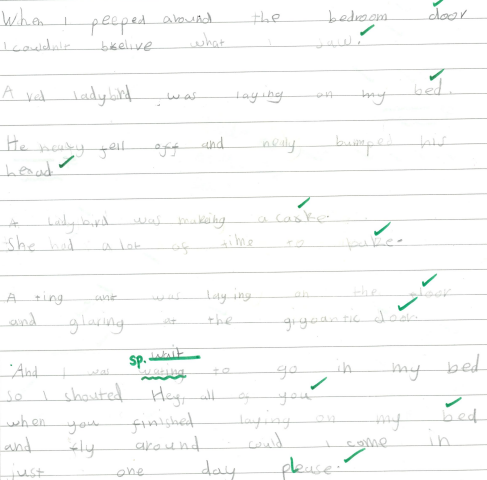 When I peeped around the bedroom door
I couldnit beelive what i saw.
A red ladybird was laying on my bed.
He nearly fell off and nerly bumped his
head
A ladybird was making a caske.
She had a lot of time to bake.
A ting ant was laying on the floor
and glaring at the gigoantic door
sp. wait
And I was wating to go in my bed
so I shouted Hey, all of you
when you finished laying on my bed
and fly around could i come in
just one day please.